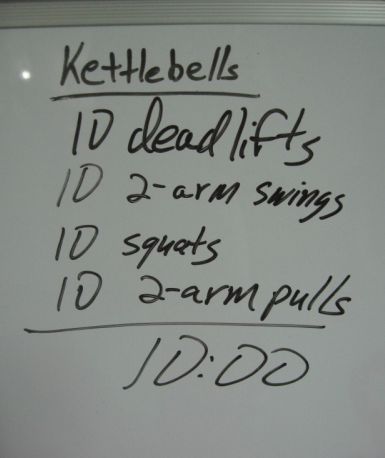 Kettlebells
10 deadlifts
10 2-arm swings
10 squats
10 2-arm pulls
10:00